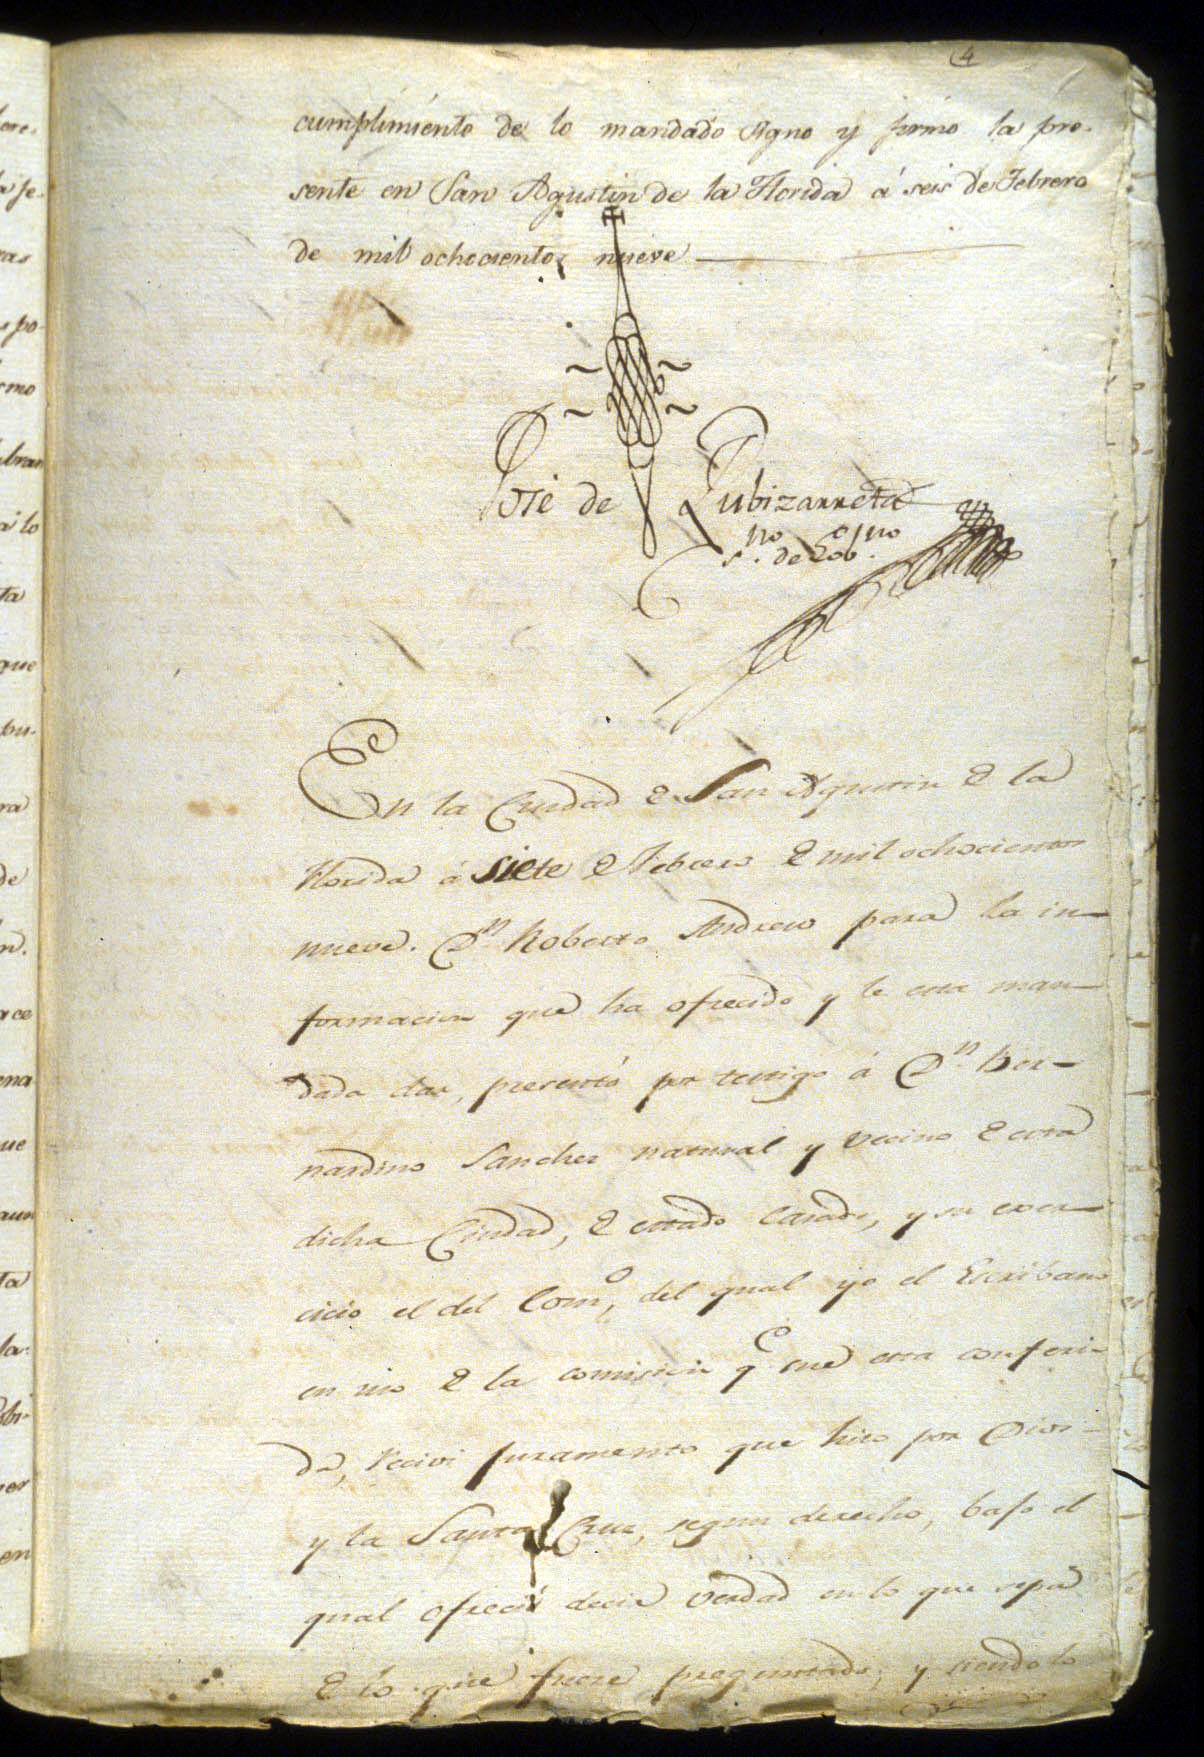 4
cumplimiento de lo mandado signo y firmo la pre-
sente en San Agustin de la Florida á seis de Febrero
de mil ochocientos nueve
José de Zubizarreta
s.no de Gob.no
En la Ciudad de San Agustin de la
Florida á siete de Febrero de mil ochocientos
nueve. Dn Roberto Andrew para la in-
formacion que ha ofrecido y le esta man-
dada dar, presentó por testigo á Dn. Ber-
nardino Sanchez natural y vecino de esta
dicha Ciudad, de estado Casado, y su exer-
cicio el del Como, del qual yo el Escribano
en uso de la comision qe me esta conferi-
da, recivi juramento que hizo por Dios
y la Santa Cruz, segun derecho, bajo el
qual ofreció decir verdad en lo que sepa
de lo que fuere preguntado, y siendolo